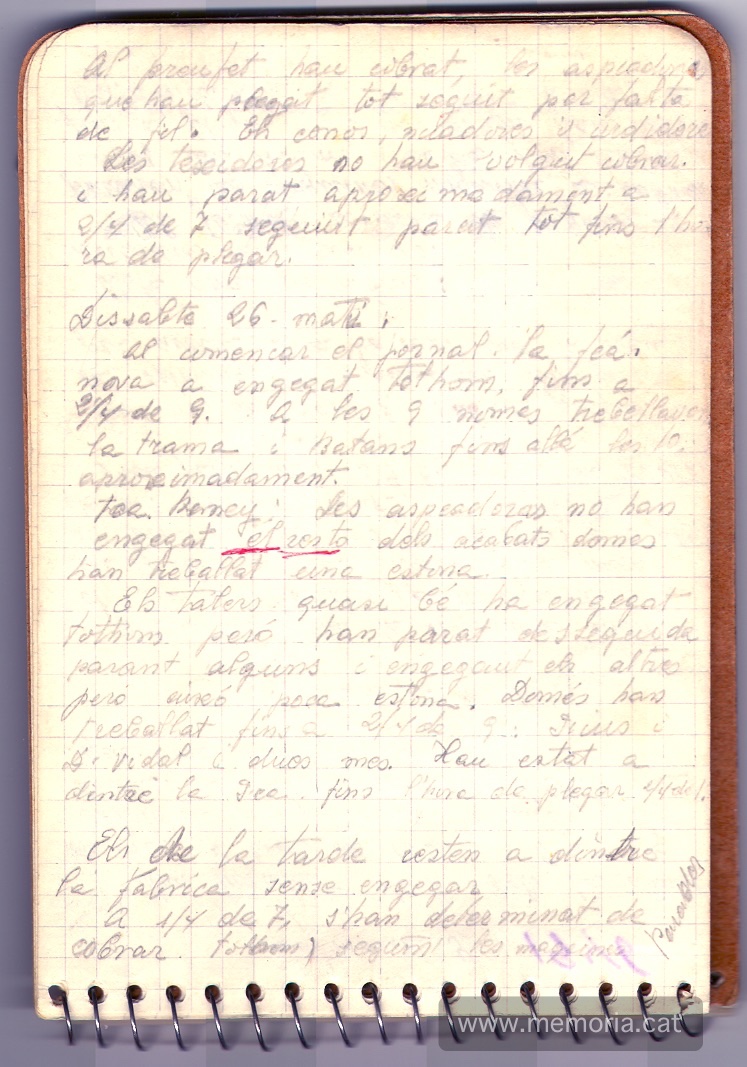 Al preufet han cobrat, les aspeadores
que han plegat tot seguit per falta
de fil. Els conos, nuadores i urdidores
Les teixidores no han volgut cobrar.
i han parat aproximadament a
2/4 de 7 seguint parat tot fins l'ho
ra de plegar.
Dissabte 26 - matí.
Al comencar el jornal. la fca.
nova a engegat tothom, fins a
2/4 de 9. A les 9 nomes treballaven
la trama i Batans fins allá les 10.
aproximadament.
Fca. Remey: Les aspeadoras no han
engegat el resto dels acabats domes
han treballat una estona.
Els talers quasi bé ha engegat
tothom peró han parat desseguida
parant alguns i engegant els altres
peró aixó poca estona. Domés han
treballat fins a 2/4 de 9:
D. Vidal i dues mes. Han estat a
dintre la Fca. fins l'hora de plegar 2/4 de 1.
Els de la tarde resten a dintre
la fabrica sense engegar
A 1/4 de 7, s'han determinat de
cobrar tothom, segúint les maquines
parades
www.memoria.cat